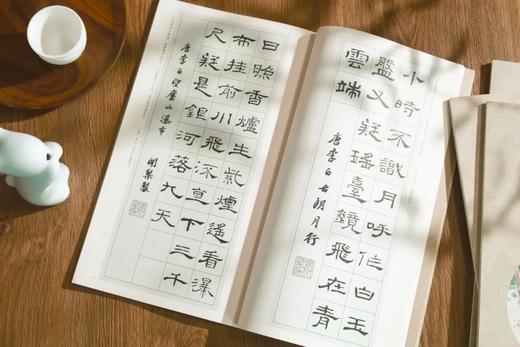 小時不識月呼作白玉
盤又疑瑤臺鏡飛在青
雲端
唐李白古朗月行
日照香爐生紫煙遙看瀑
布挂前川飛流直下三千
尺疑是銀河落九天
唐李白望廬山瀑布